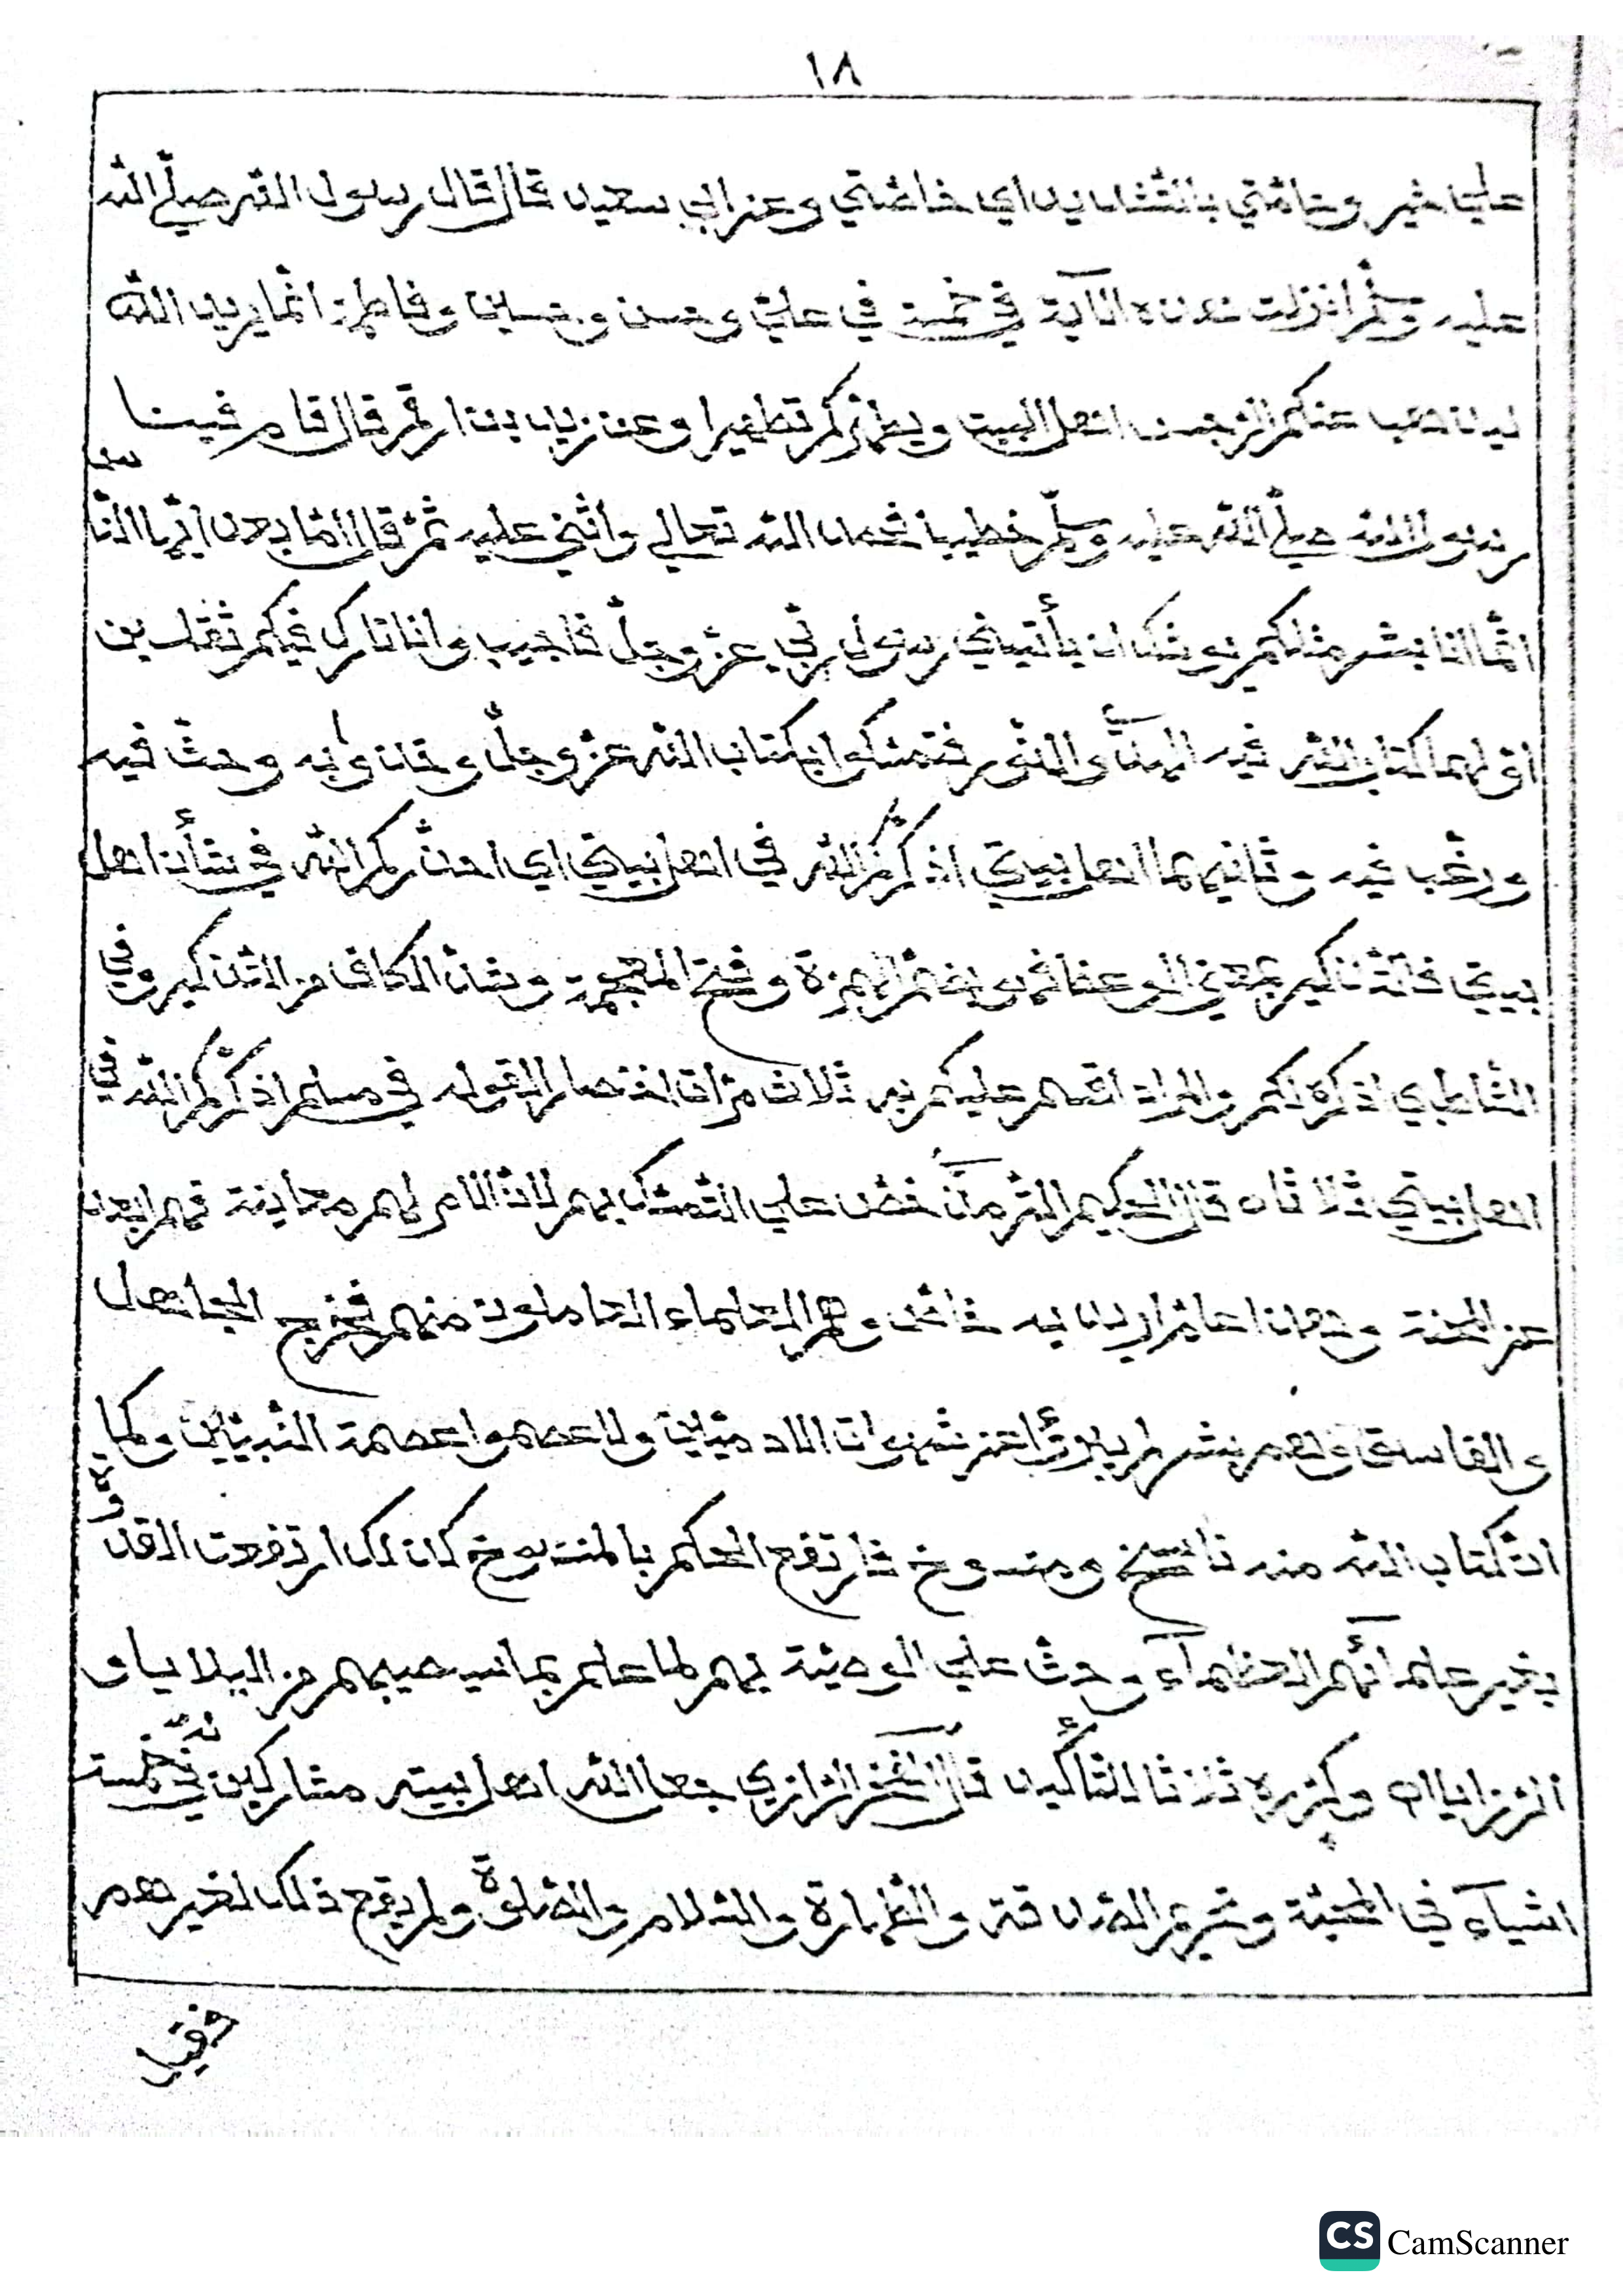 ١٨
علي خير وحامتي بالتشديد اي خاصتي وعن ابي سعيد قال قال رسول الله صلّي الله
عليه وسلّم انزلت هذه الآية في خمسة في عليّ وحسن وحسين وفاطمة انّما يريد الله
ليذهب عنكم الرّجس اهل البيت ويطهّركم تطهيرا وعن زيد بن ارقم قال قام فينا
رسول الله صلّي الله عليه وسلّم خطيبا فحمد الله تعالي واثني عليه ثمّ قال امّا بعد ايّها النّاس
انّما انا بشر مثلكم يوشك ان يأتيني رسول ربّي عزّ وجلّ فاجيب وانا تارك فيكم ثقلين
اوّلهما كتاب الله فيه الهدي والنّور فتمسّكوا بكتاب الله عزّ وجلّ وخذوا به وحثّ فيه
ورغّب فيه وثانيهما اهل بيتي اذكّركم الله في اهل بيتي اي احذّركم الله في شأن اهل
بيتي فالتّذكير بمعني الوعظ فهو بضمّ الهمزة وفتح المعجمة وشدّ الكاف من التّذكير وفي
الشّاطبي اذكره لكم والمراد اقسم عليكم به ثلاث مرّات اختصار لقوله في مسلم اذكّركم الله في
اهل بيتي ثلاثا ه قال الحكيم التّرمذي حضّ علي التّمسّك بهم لانّ الامر لهم معاينة فهم ابعد
عن المحنة وهذا عامّ اريد به خاصّ وهم العلماء العاملون منهم فخرج الجاهل
والفاسق وهم بشر لم يبرّؤا عن شهوات الادميّين ولا عصموا عصمة النّبيّين وكما
انّ كتاب الله منه ناسخ ومنسوخ فارتفع الحكم بالمنسوخ كذلك ارتفعت القدوة
بغير علمائهم العظماء وحثّ علي الوصيّة بهم لما علم بما سيصيبهم من البلايا و
الرّزايا اه وكرّره ثلاثا للتّأكيد قال الفخر الرّازي جعل الله اهل بيته مشاركين له في خمسة
اشياء في المحبّة وتحريم الصّدقة والطّهارة والسّلام والصّلوة ولم يقع ذلك لغيرهم